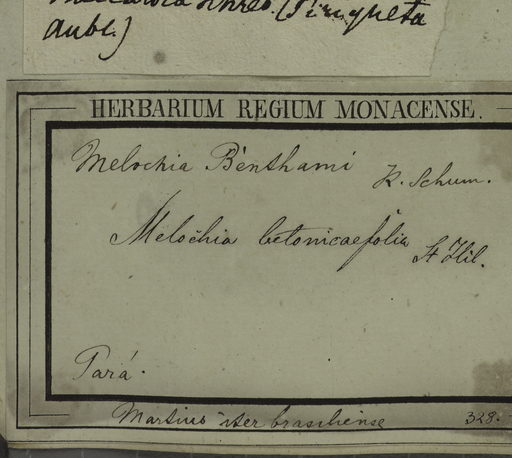 (Piriqueta
Aubl.)
HERBARIUM REGIUM MONACENSE.
Melochia Benthami K. Schum.
Melochia betonicaefolia St Hil.
Pará.
Martius iter brasiliense 328.